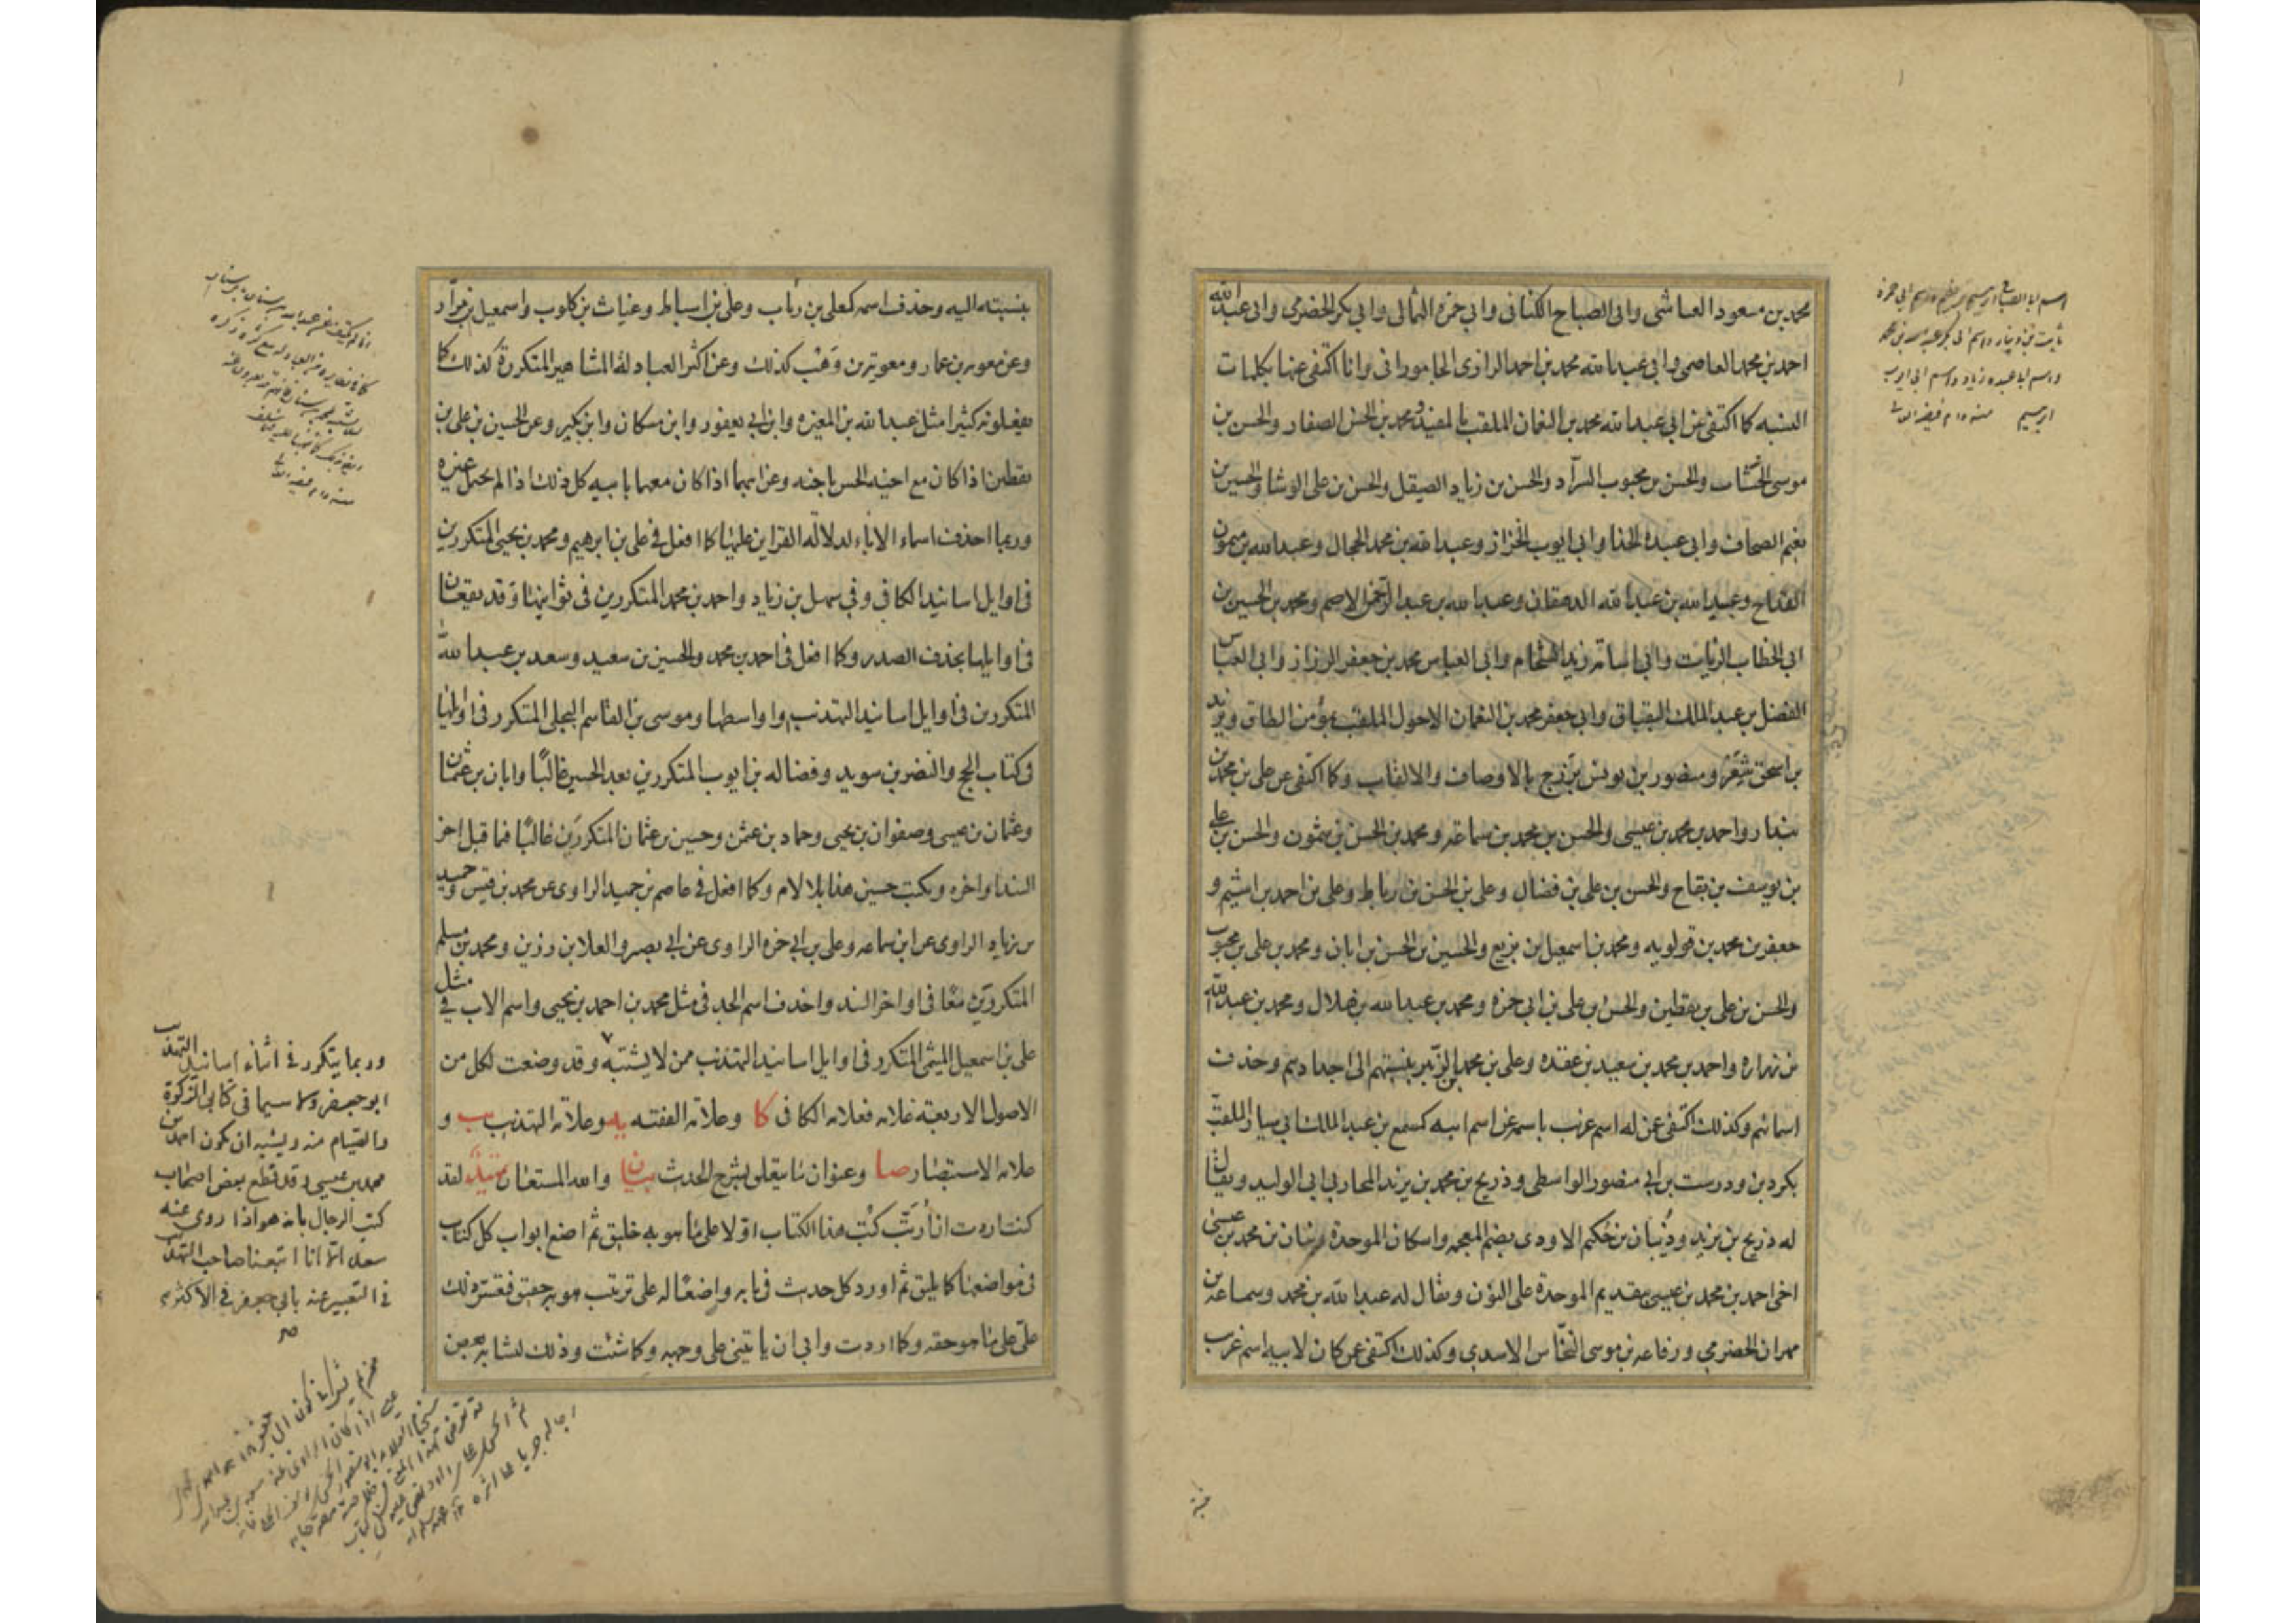 محمد بن مسعود العياشي وابي الصباح الكناني وابي حمزه الثمالي وابي بكر الحضرمي وابي عبد الله
احمد بن محمد العاصمي وابي عبد الله محمد بن احمد الرازي الجاموراني وانا اكتفي عنها بكلمات
النسبه كما اكتفي عن ابي عبد الله محمد بن النعمان الملقب بالمفيد ومحمد بن الحسن الصفار والحسن بن
موسى الخشاب والحسن بن محبوب السراد والحسن بن زياد الصيقل والحسن بن علي الوشا والحسين بن
نعيم الصحاف وابي عبيده الحذا وابي ايوب الخزاز وعبد الله بن محمد الحجال وعبد الله بن ميمون
القداح وعبيد الله بن عبد الله الدهقان وعبد الله بن عبد الرحمن الاصم ومحمد بن الحسين بن
ابي الخطاب الزيات وابي اسامة زيد الشحام وابي العباس محمد بن جعفر الرزاز وابي العباس
الفضل بن عبد الملك البقباق وابي جعفر محمد بن النعمان الاحول الملقب بمؤمن الطاق ويزيد
بن اسحق شعر ومنصور بن يونس بزرج بالاوصاف والالقاب وكما اكتفي عن علي بن محمد بن
بندار واحمد بن محمد بن عيسى والحسن بن محمد بن سماعة ومحمد بن الحسن بن شمون والحسن بن علي
بن يوسف بن بقاح والحسن بن علي بن فضال وعلي بن الحسن بن رباط وعلي بن احمد بن اشيم و
جعفر بن محمد بن قولويه ومحمد بن اسمعيل بن بزيع والحسين بن الحسن بن ابان ومحمد بن علي بن محبوب
والحسن بن علي بن يقطين والحسن بن علي بن ابي حمزه ومحمد بن عبد الله بن هلال ومحمد بن عبد الله
بن زراره واحمد بن محمد بن سعيد بن عقده وعلي بن محمد بن الزبير بنسبتهم الى اجدادهم وحذف
اسمائهم وكذلك اكتفي عن له اسم غريب باسمه عن اسم ابيه كمسمع بن عبد الملك ابي سيار الملقب
بكردين ودرست بن ابي منصور الواسطي وذريح بن محمد بن يزيد المحاربي ابي الوليد ويقال
له ذريح بن يزيد وذبيان بن حكيم الاودي بضم المعجمة واسكان الموحدة وبنان بن محمد بن عيسى
اخي احمد بن محمد بن عيسى بتقديم الموحدة على النون ويقال له عبد الله بن محمد وسماعة بن
مهران الحضرمي ورفاعه بن موسى النخاس الاسدي وكذلك اكتفي عن كان لابيه اسم غريب
بنسبته اليه وحذف اسمه كعلي بن رئاب وعلي بن اسباط وغياث بن كلوب واسمعيل بن مرار
وعن معوية بن عمار ومعوية بن وهب كذلك وعن اكثر العبادلة المشاهير المتكررة كذلك كما
يفعلونه كثيرا مثل عبد الله بن المغيره وابن ابي يعفور وابن مسكان وابن بكير وعن الحسين بن علي بن
يقطين اذا كان مع اخيه الحسن باخيه وعن ابيهما اذا كان معهما بابيه كل ذلك اذا لم يحتمل غيره
وربما احذف اسماء الاباء لدلالة القراين عليها كما افعل في علي بن ابرهيم ومحمد بن يحيى المتكررين
في اوايل اسانيد الكافي وفي سهل بن زياد واحمد بن محمد المتكررين في ثوانيها وقد يقعان
في اوايلها بحذف الصدر وكما افعل في احمد بن محمد والحسين بن سعيد وسعد بن عبد الله
المتكررين في اوايل اسانيد التهذيب واواسطها وموسى بن القاسم البجلي المتكرر في اوايلها
في كتاب الحج والنضر بن سويد وفضاله بن ايوب المتكررين بعد الحسين غالبًا وابان بن عثمان
وعثمان بن عيسى وصفوان بن يحيى وحماد بن عثمن وحسين بن عثمان المتكررين غالبًا فما قبل اخر
السند او اخره ويكتب حسين هذا بلا لام وكما افعل في عاصم بن حميد الراوي عن محمد بن قيس وحميد
بن زياد الراوي عن ابن سماعه وعلي بن ابي حمزه الراوي عن ابي بصير والعلا بن رزين ومحمد بن مسلم
المتكررين معًا في اواخر السند واحذف اسم الجد في مثل محمد بن احمد بن يحيى واسم الاب في مثل
علي بن اسمعيل الميثمي المتكرر في اوايل اسانيد التهذيب ممن لا يشتبه وقد وضعت لكل من
الاصول الاربعة علامه فعلامه الكافي كا وعلامه الفقيه يه وعلامة التهذيب يب و
علامه الاستبصار صا وعنوان ما يتعلق بشرح الحديث بيان والله المستعان تمهيد لقد
كنت اردت ان أرتب كتب هذا الكتاب اولا على ما هو به خليق ثم اضع ابواب كل كتاب
في مواضعها كما يليق ثم اورد كل حديث في بابه واضعًا له على ترتيب هو به حقيق فعسر ذلك
علي على ما هو حقه وكما اردت وابى ان ياتيني على وجهه وكما شئت وذلك لتشابه بعض
وربما يتكرر في اثناء اسانيد التهذيب
ابو جعفر ولا سيما في كتابي الزكوة
والصيام منه ويشبه ان يكون احمد بن
محمد بن عيسى وقد قطع بعض اصحاب
كتب الرجال بانه هو اذا روى عنه
سعد الا انا اتبعنا صاحب التهذيب
في التعبير عنه بابي جعفر في الاكثر